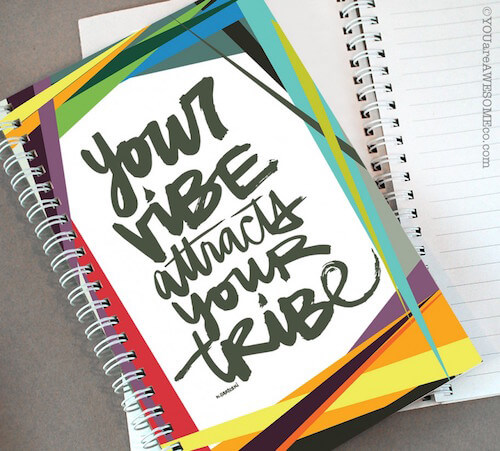 YOUR
VIBE
attracts
YOUR
tRiBe
©YOUareAWESOMEoo.com